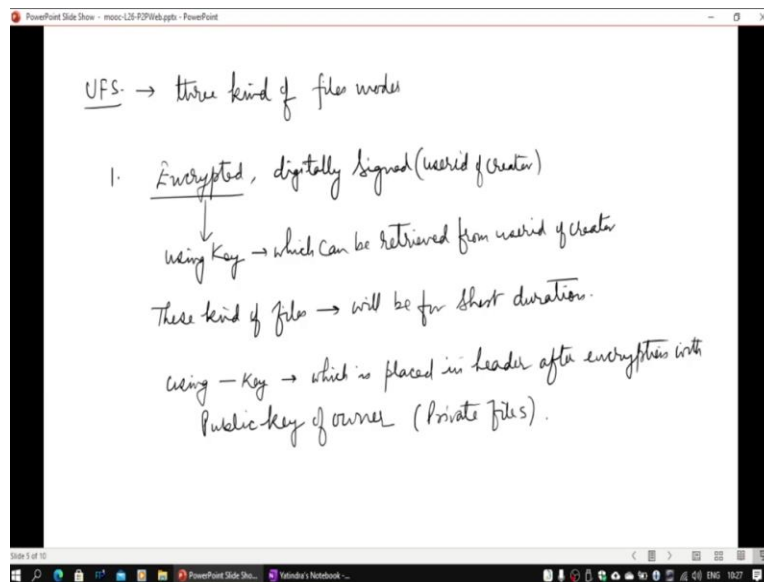 PowerPoint Slide Show - mooc-L26-P2PWeb.pptx - PowerPoint
UFS. → three kind of files modes
1. Encrypted, digitally signed (userid of creator)
using Key → which can be retrieved from userid of creator
These kind of files → will be for short duration.
using - Key → which is placed in header after encryption with
Public key of owner (Private files).
Slide 5 of 10
PowerPoint Slide Sho... Yatindra's Notebook -... ENG 10:27